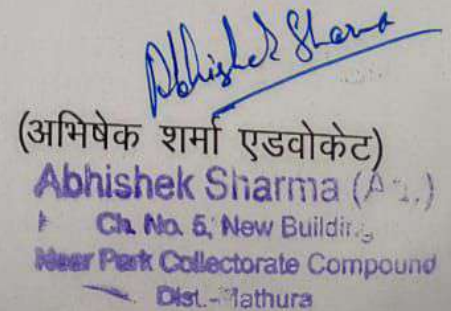 Abhishek Sharma
(अभिषेक शर्मा एडवोकेट)
Abhishek Sharma
Ch. No. 5, New Building
Near Park Collectorate Compound
Dist.-